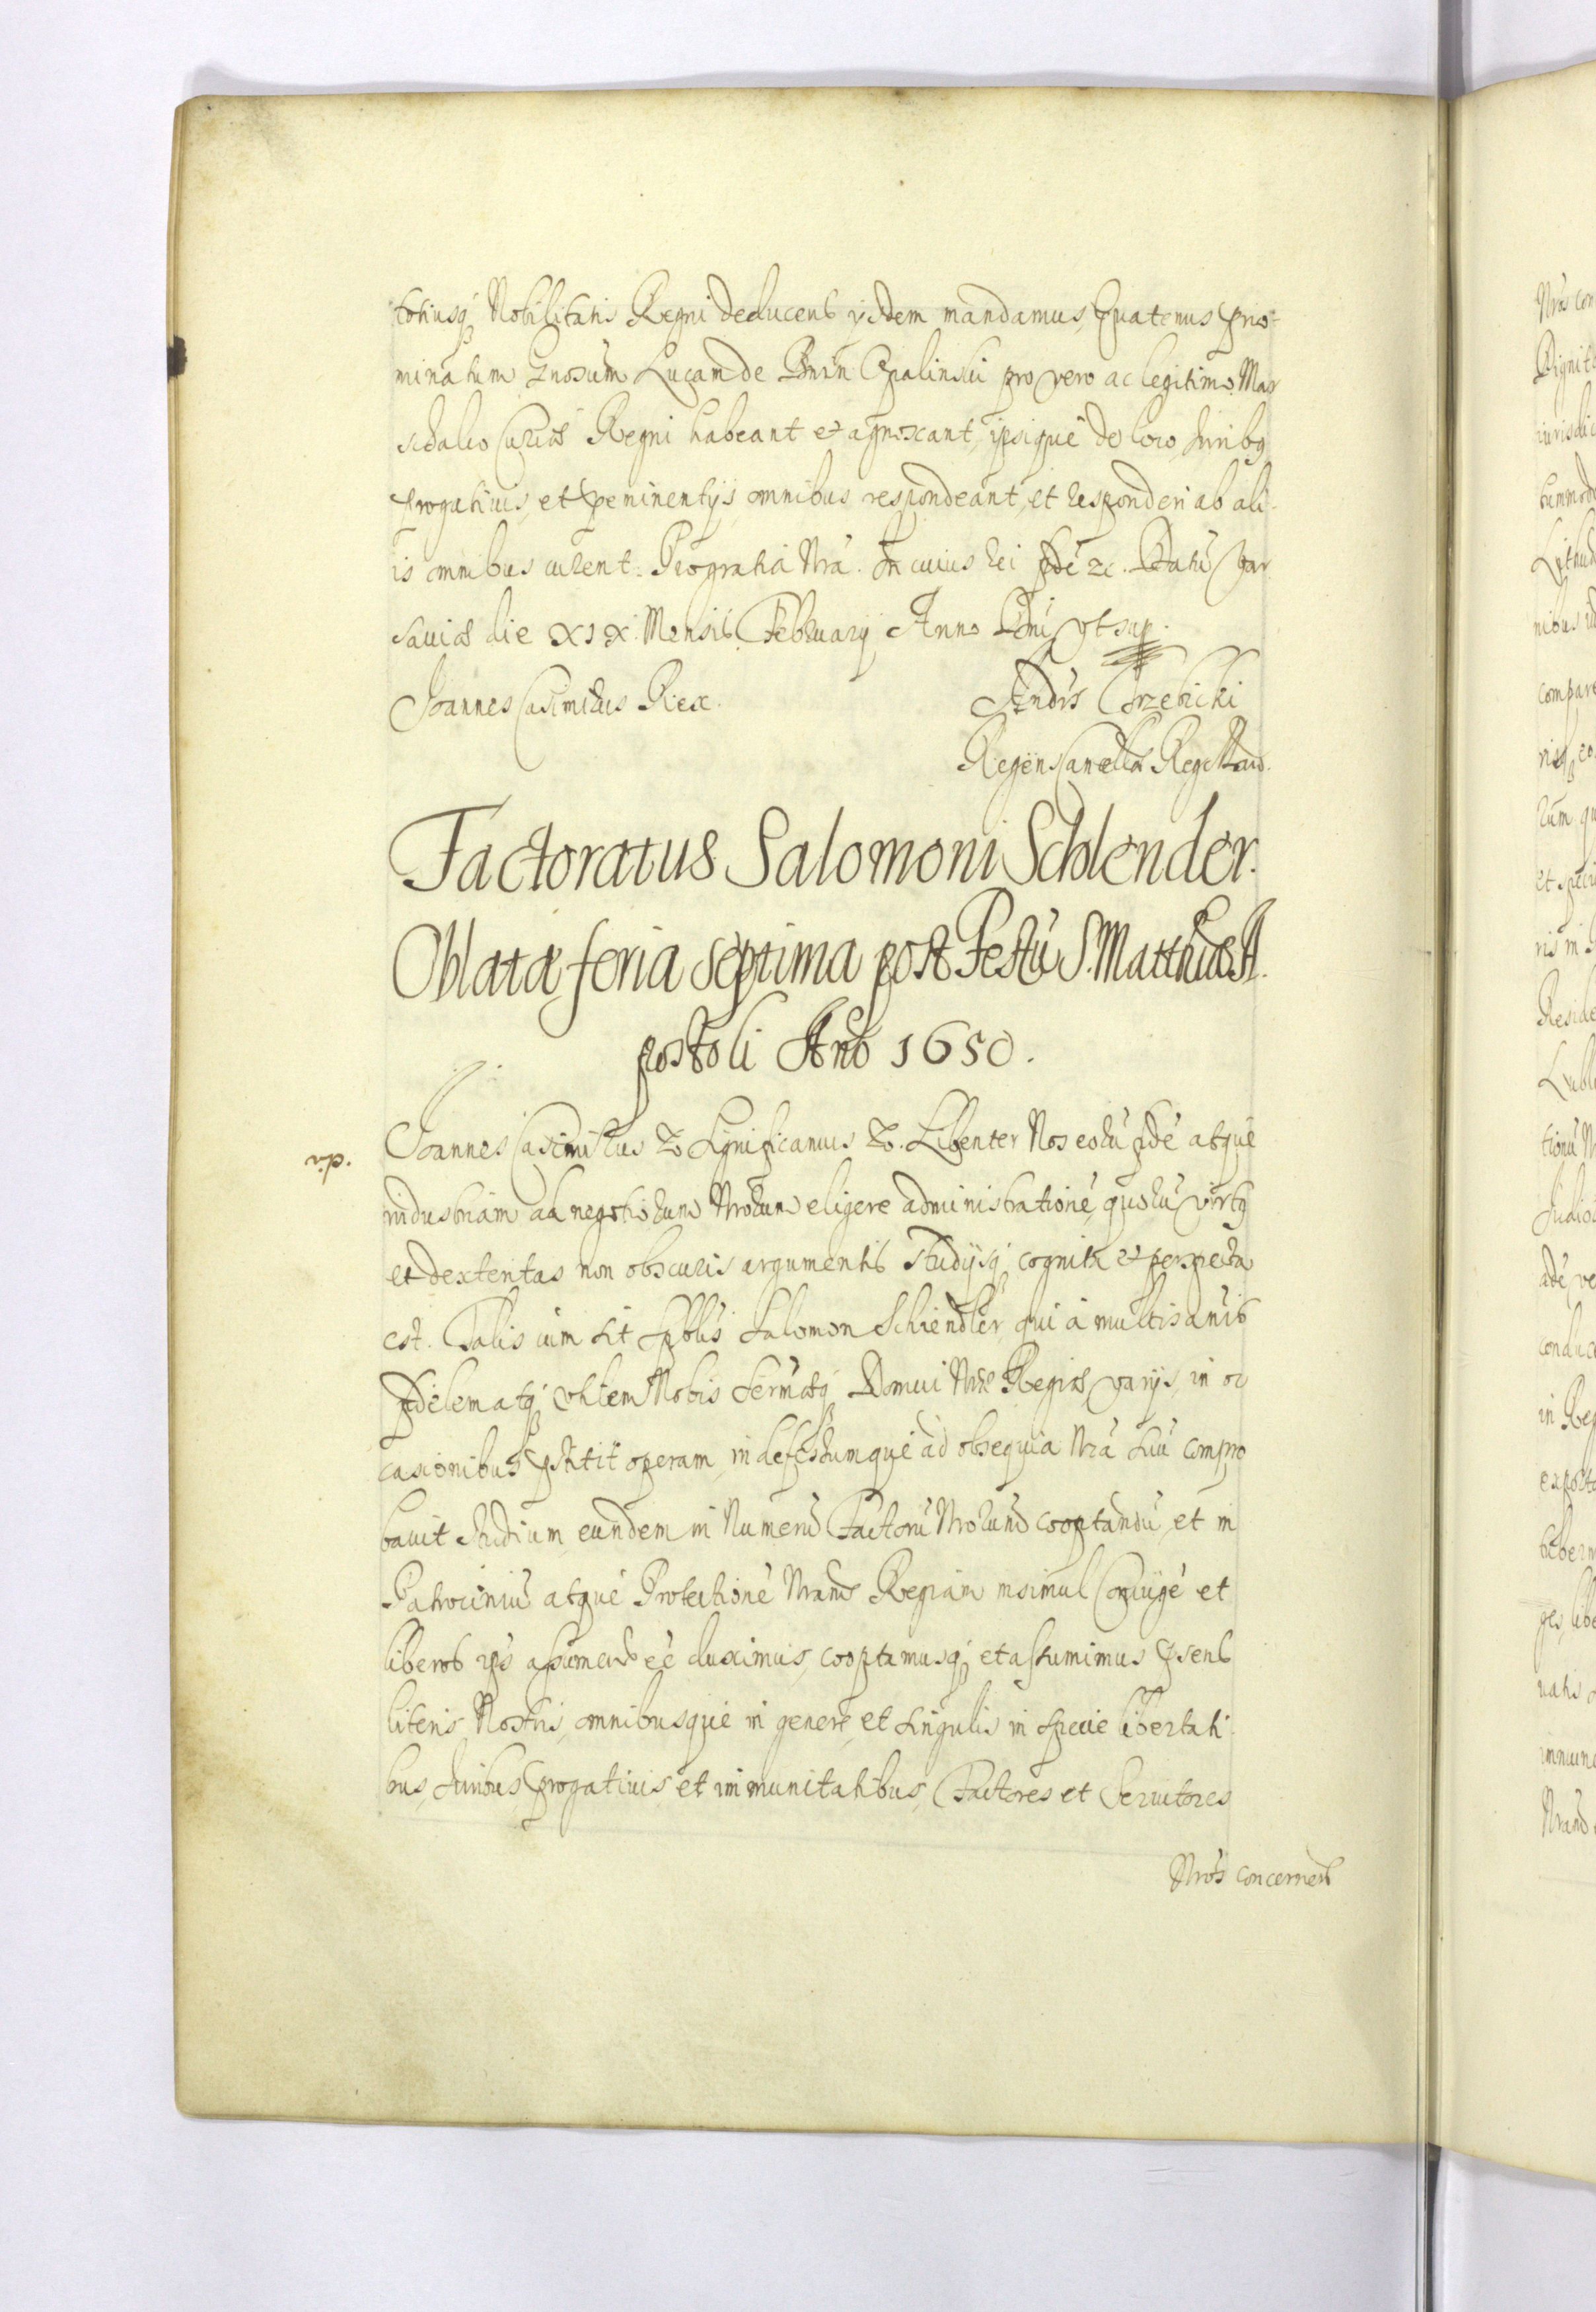 totiusq; Nobilitatis Regni deducents ijsdem mandamus, quatenus prno-
minatum Gnosum Lucam de Bnin Opalinski pro vero ac legitimo Mar
schalco Curiæ Regni habeant et agnoscant, ipsique de loco, Juribq
prrogatiuis, et preminentijs omnibus respondeant, et responderi ab ali-
is omnibus curent. Pro gratia Nra. In cuius rei fidé &c. Datú Var
sauiæ die XIX. Mensis February Anno Dni vt sup.
Joannes Casimirus Rex.
Andrs Trzebicki
Regens Cancellar Regni
Factoratus Salomoni Schlender.
Oblatæ feria septima post Festú S. Matthiæ A.
postoli Ano 1650.
Joannes Casimirus &c Significamus &c. Libenter Nos eorú fidé atque
industriam ad negotiorum Nrorum eligere administrationé, quorú virtq
et dexteritas non obscuris argumentis studijsq; cognita et perspecta
est. Talis cum sit Spblis Salomon Schiendler, qui à multis annis
fidelem atq; vtilem Nobis Sermæq; Domui Nræ Regiæ varijs in oc
casionibus prstitit operam, indefessumque ad obsequia Nra suú compro
bauit studium, eundem in Numerú Factorú Nrorum cooptandú, et in
Patrociniú atque Protectioné Nram Regiam insimul Coniugé et
liberos ips assumend eé duximus, cooptamusq; et assumimus prsents
literis Nostris, omnibusque in genere, et singulis in specie libertati-
bus, Juribus, prrogatiuis, et immunitatibus, Factores et Seruitores
Nros concernent